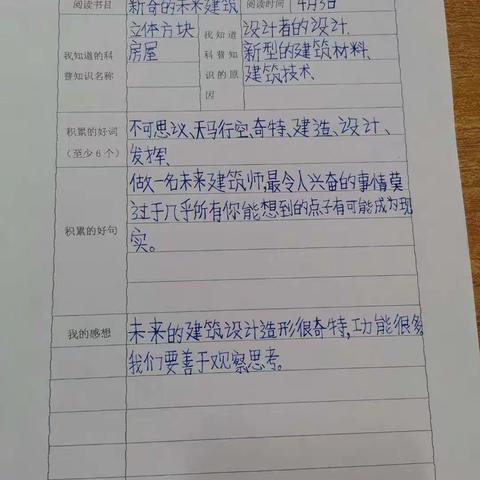 阅读书目 新奇的未来建筑 阅读时间 4月5日
我知道的科普知识名称 立体方块房屋 我知道科普知识的原因 设计者的设计、新型的建筑材料、建筑技术、
积累的好词
(至少6个)
不可思议、天马行空、奇特、建造、设计、
发挥、
积累的好句
做一名未来建筑师,最令人兴奋的事情莫
过于几乎所有你能想到的点子有可能成为现
实。
我的感想
未来的建筑设计造形很奇特,功能很多
我们要善于观察思考。